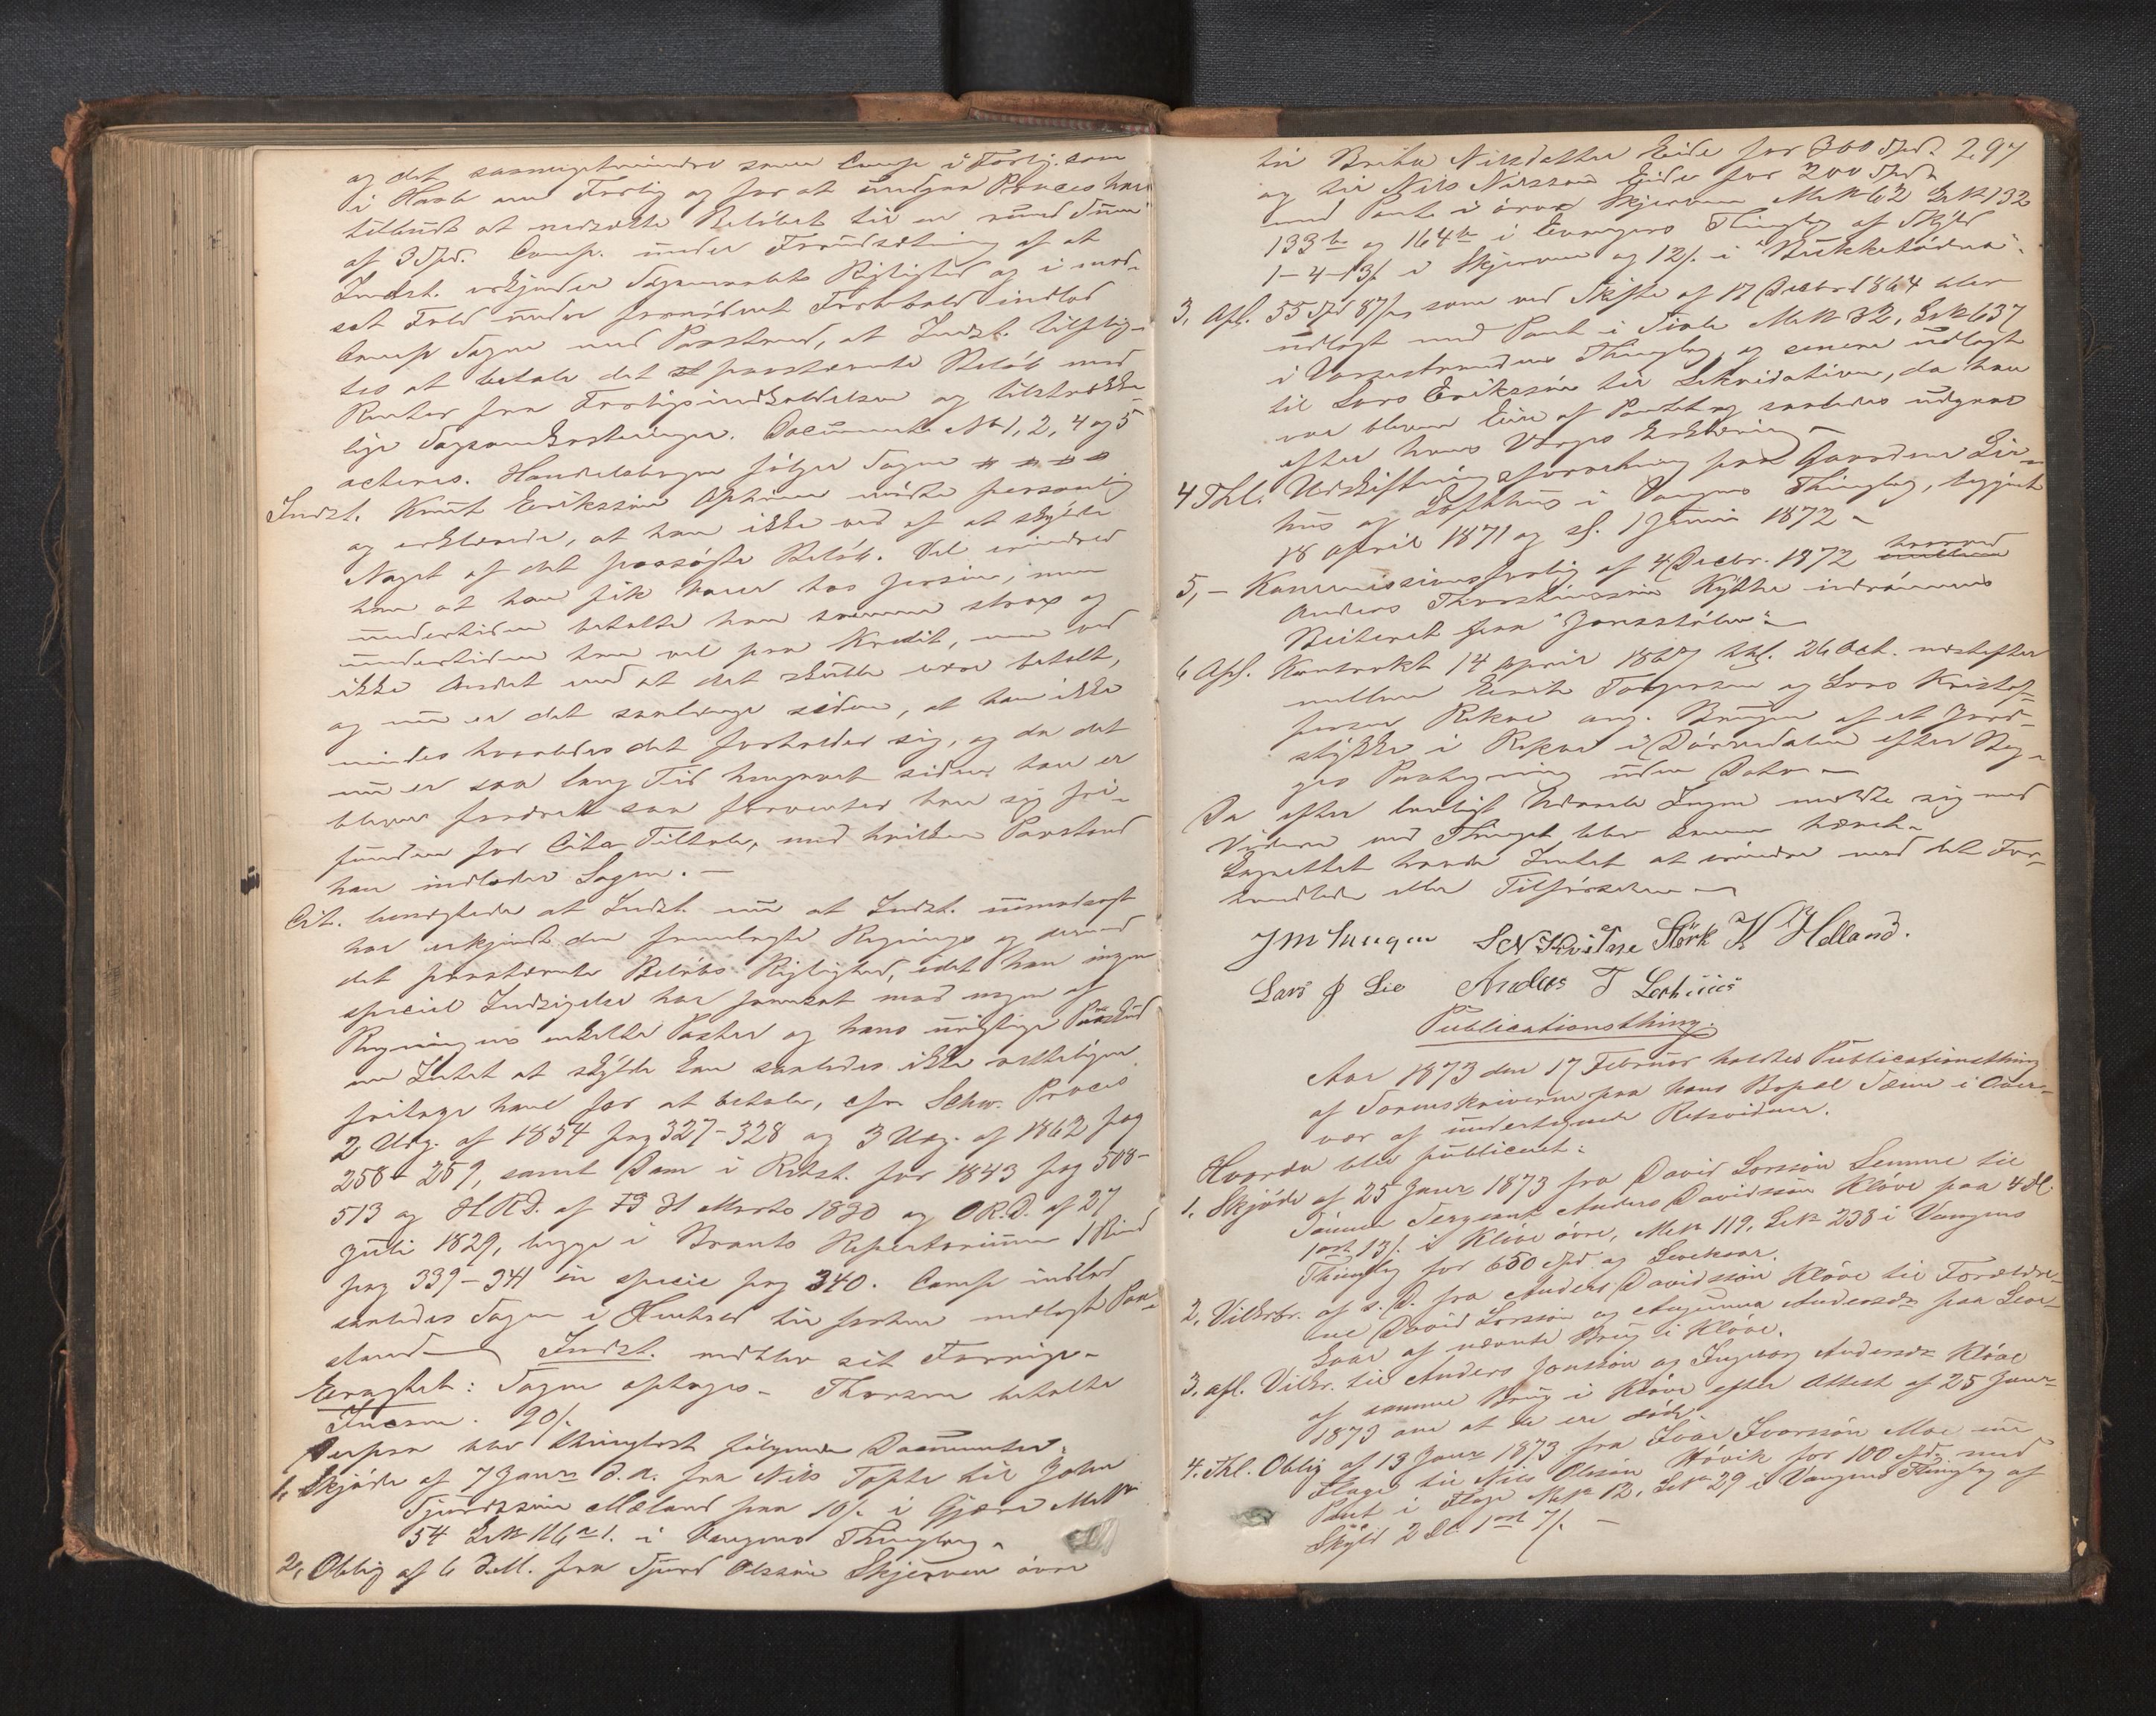 og det saameget mindre som Comp. i Forlig. som
i Haab om Forlig og for at undgaa Proces har
tilbudt at nedsætte Beløbet til en rund Sum
af 3 Spd. Comp. under Forudsætning af at
Indst. erkjender Søgsmaalets Rigtighed og i mod-
sat Fald under fornødent Forbehold indlod
Comp Sagen med Paastand, at Indst. tilplig-
tes at betale det paastævnte Beløb med
Renter fra Forligsindkaldelsen og tilstrække-
lige Sagsomkostninger. Documente No 1, 2, 4 og 5
acteres. Handelsbogen følger Sagen
Indst. Knut Eriksson mødte personlig
og erklærede, at han ikke ved af at skylde
Noget af det paasøgte Beløb. Vel erindred
han at han fik Varer hos Jersin, men
undertiden betalte han samme strax og
undertiden tog han vel paa Kredit, men ved
ikke Andet end at det skulde være betalt,
og nu er det saalænge siden, at han ikke
mindes hvorledes det forholder sig, og da det
nu er saa lang Tid hengaaet siden han er
bleven fordret saa forventer han sig fri-
funden for Cits Tiltale, med hvilken Paastand
han indlader Sagen. –
Cit. benægtede at Indst. nu at Indst. uimodsagt
har erkjendt den fremlagte Regnings og dermed
det paastævnte Beløbs Rigtighed, idet han ingen
speciel Indsigelse har fremsat mod nogen af
Regningens enkelte Poster og hans urigtige Paaskud
om Intet at skylde kan saaledes ikke retteligen
fritage ham for at betale, cfr. Schw. Proces
2 Udg. af 1854 pag 327-328 og 3 Udg. af 1862 pag
258-259, samt Dom i Retst. for 1843 pag 508-
513 og H.R.D. af 31 Marts 1830 og O.R.D. af 27
Juli 1829, begge i Brants Repertorium 1 Bind
pag 339-341 in specie pag 340. Comp indlod
saaledes Sagen i Henhold til forhen nedlagt Paa-
stand Indst. nedblev sit Forrige.
Eragtet: Sagen optages. Thorsen betalte
Incam. 20/.
Derpaa blev thinglæst følgende Documenter:
1, Skjøde af 7 Januar d.A. fra Nils Tofte til John
Sjurdssøn Mæland paa 10/. i Gjære MNo
54 LNo 116 a 1. i Vangens Thinglag.
2, Oblig af 6 d.M. fra Sjurd Olssøn Skjerven øvre
297
til Brita Nilsdatter Eide for 300 Spd.
og til Nils Nilssøn Eide for 200 Spd.
med Pant i øvre Skjerven MNo 62 LNo 132
133 b og 164 b i Evangers Thinglag af Skyld
1-4-13/. i Skjerven og 12/. i
3, Afl. 55 Spd 87/. som ved Skifte af 17 Decbr 1864 blev
udlagt med Pant i MNo 32, LNo 637
i Vossestrandens Thinglag og senere udlagt
til Lars Eriksson til Likvidation, da han
var bleven Eier af Pantet og saaledes udgaar
efter hans Værges Erklæring
4 Thl. Udskiftningsforretning paa Gaardene Lie-
hus og Lofthus i Vangens Thinglag, begyndt
18 April 1871 og sl. 1 Juni 1872
5, – Kommissionsforlig af 4 Decbr. 1872 hvorved
Anders Thorsteinssøn Kyte indrømmes
Beiteret fra "Jonsstølen"
6 Afl. Kontrakt 14 April 1867 thl. 26 Oct. næstefter
mellem Erik Torgersen og Lars Kristof-
fersen Rekve ang. Brugen af et Jord-
stykke i Rekve i efter Beg-
ges Paategning uden Dato
Da efter lovligt Udraab Ingen meldte sig med
Videre ved Thinget blev samme hævet.
Lagrettet havde Intet at erindre mod det For-
handlede eller Tilførselen
Størk K Helland.
Lars J Lie Anders T
Publicationsthing.
Aar 1873 den 17 Februar holdtes Publicationsthing
af Sorenskriveren paa hans Bopæl Tæen i Over-
vær af undertegnede Retsvidner.
Hvorda blev publiceret:
1. Skjøde af 25 Januar 1873 fra David Larssøn Lemme til
Sønnen Sergeant Anders Davidssøn Kløve paa 4 Spl.
1 ort 13/. i Kløve øvre, MNo 119, LNo 238 i Vangens
Thinglag for 650 Spd og Levekaar.
2, Vilkrbr. af s. D. fra Anders Davidssøn Kløve til Forældre-
ne David Larssøn og Angunna Andersdr paa Leve-
kaar af nævnte Brug i Kløve.
3. Afl. Vilkr. til Anders Jonssøn og Ingeborg Andersdr Kløve
af samme Brug i Kløve efter Attest af 25 Januar
1873 om at de ere døde.
4. Thl. Oblig af 13 Januar 1873 fra Ivar Ivarssøn Moe nu
Flage til Nils Olssøn Høvik for 100 Spd. med
Pant i Flage MNo 12, LNo 29 i Vangens Thinglag af
Skyld 2 Dl 1 ort 7/. –